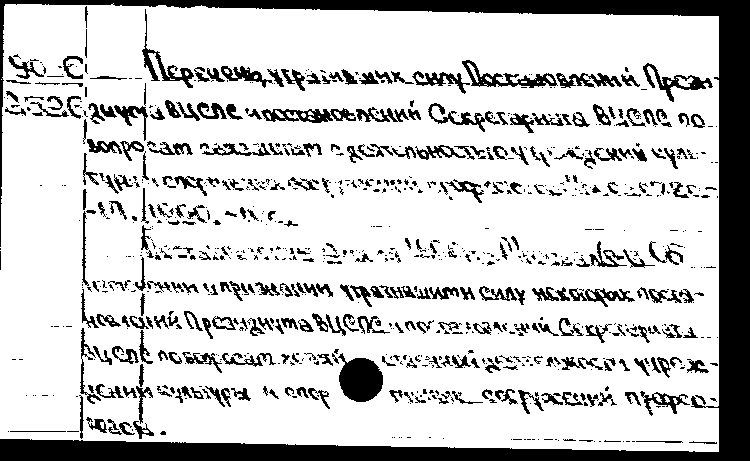 90-6 Перечень утративших силу Постановлений Прези-
2536 диума ВЦСПС и постановлений Секретариата ВЦСПС по
вопросам связанным с деятельностью учреждений куль-
туры и спортивных сооружений профсоюзов
-М., 1960. -
Постановление
изменении и признании утратившими силу некоторых поста-
новлений Президиума ВЦСПС и постановлений Секретариата
ВЦСПС по вопросам хозяйственной деятельности учреж-
дений культуры и спортивных сооружений профсо-
юзов.